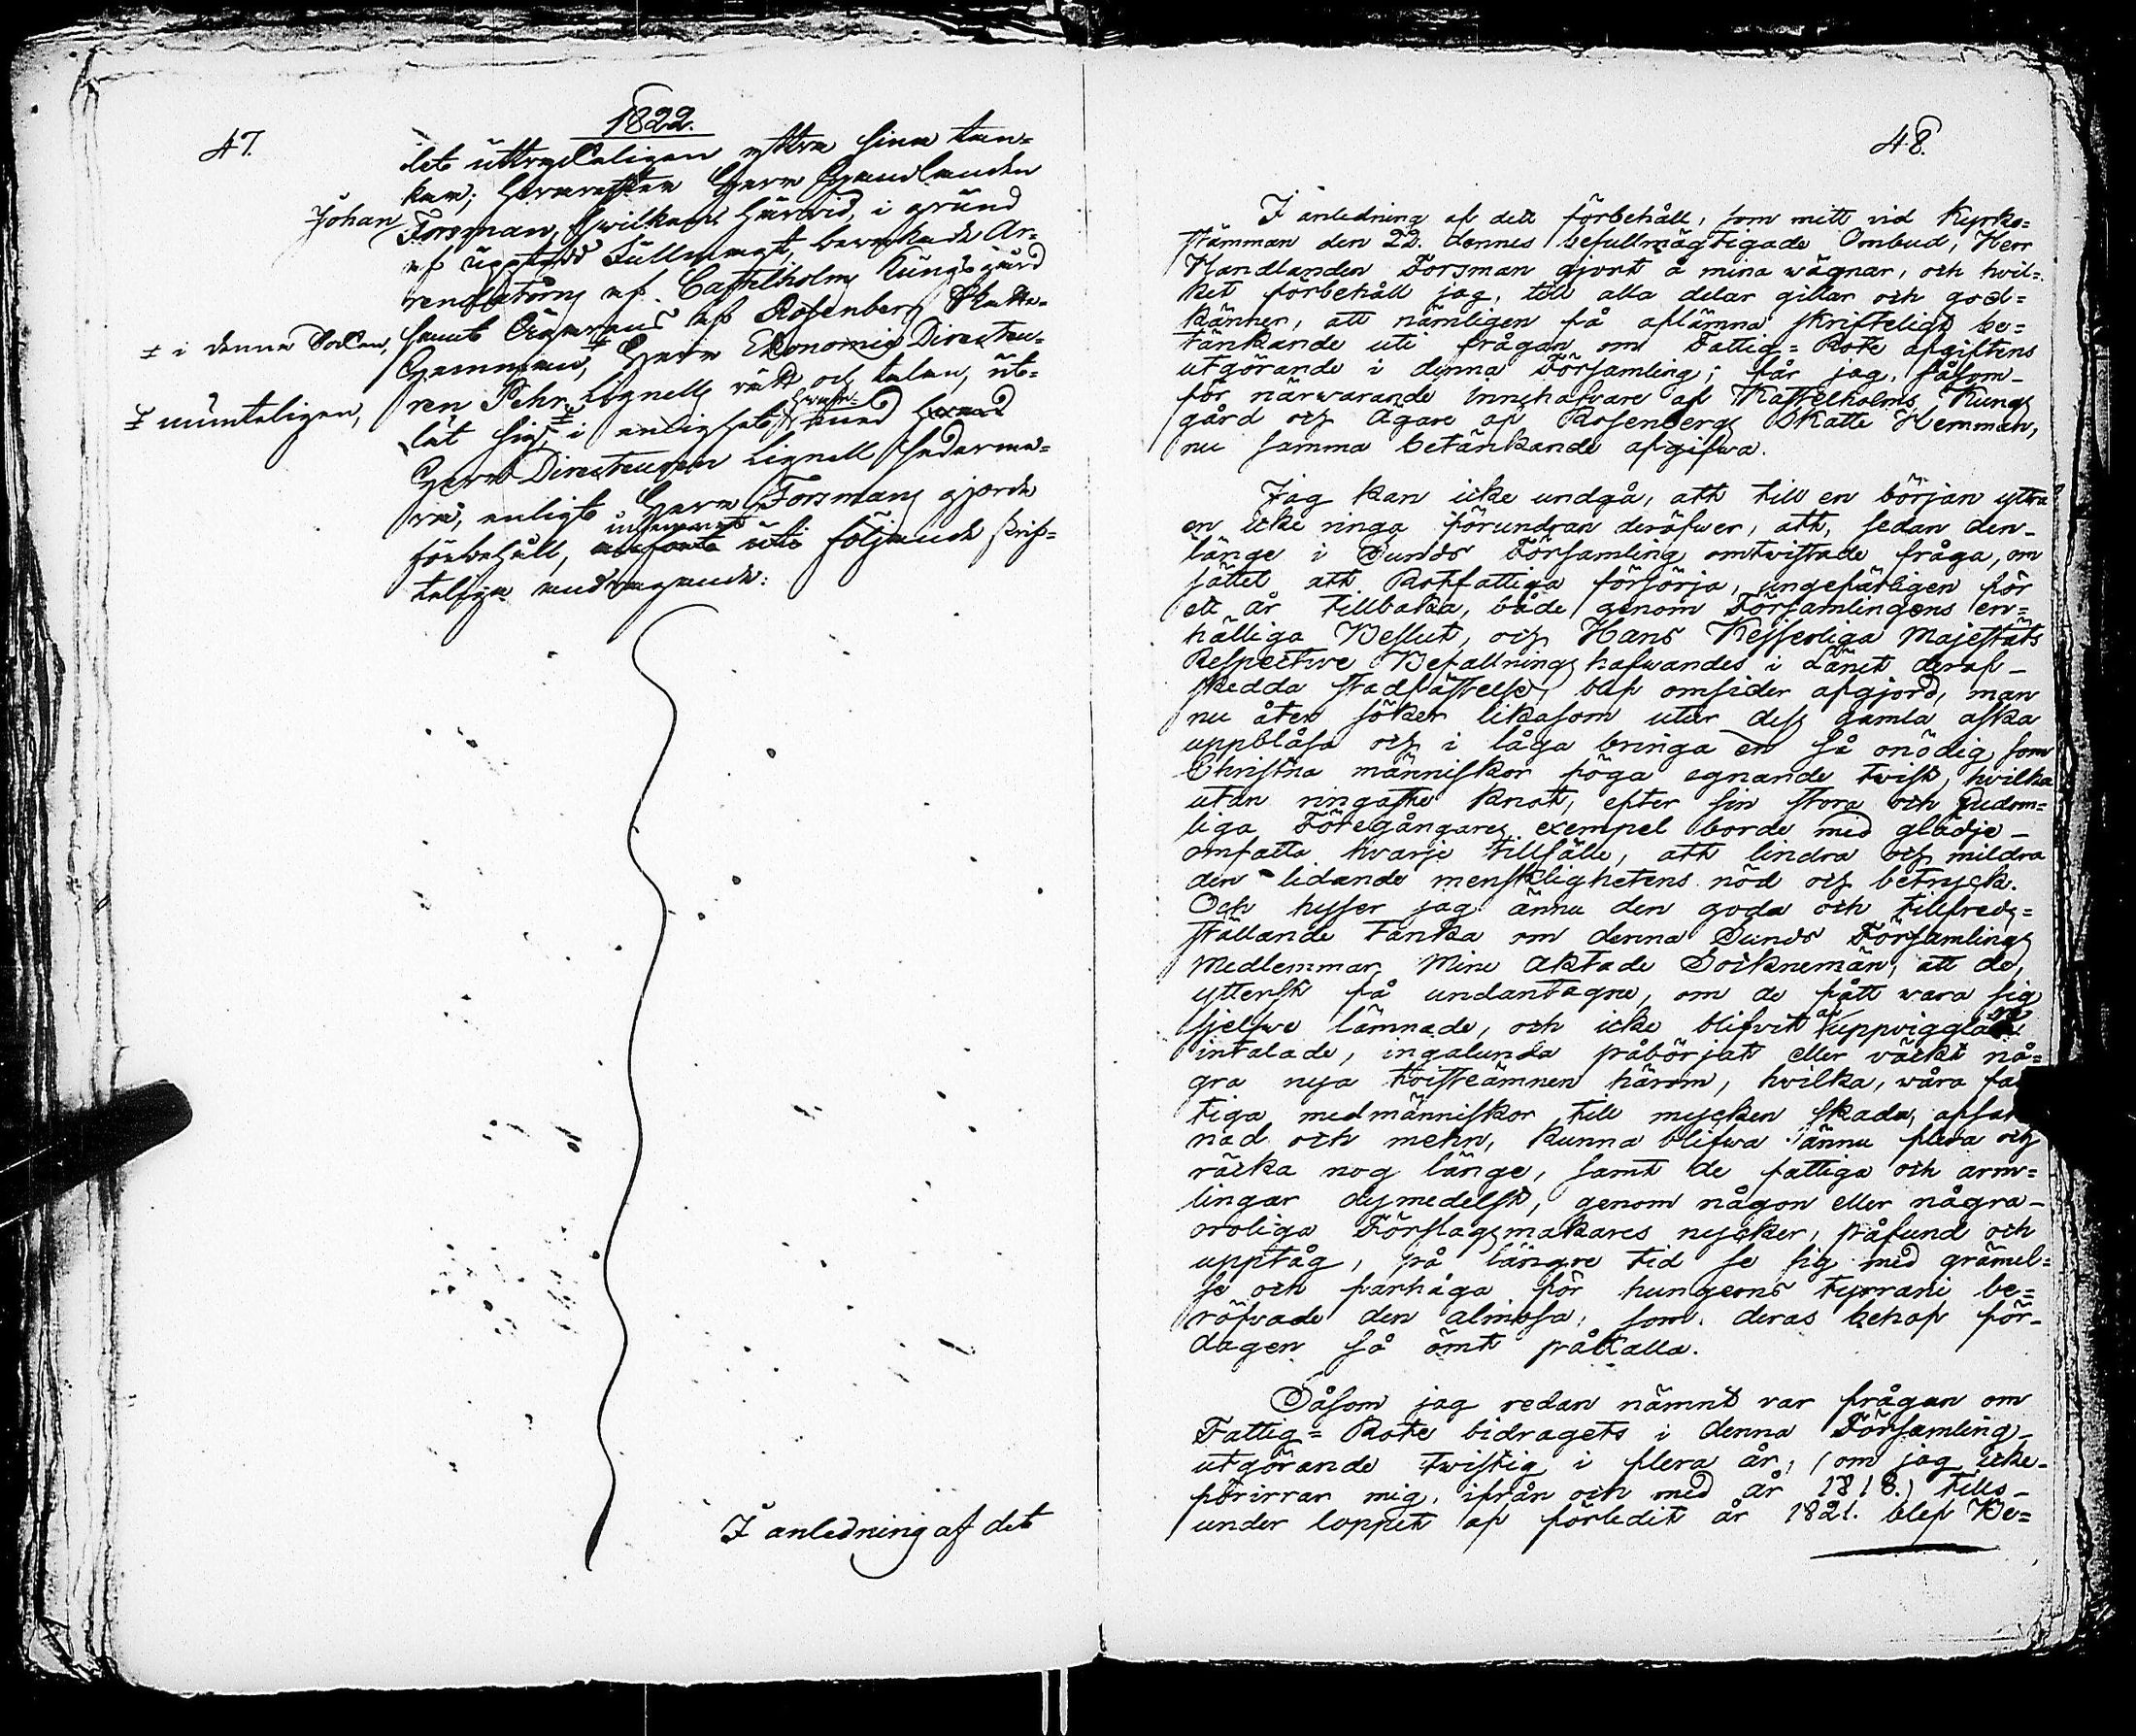 1822.
47.
det uttryckeligen yttra sina tan=
kar; hvarefter Herr Handlanden
Johan
Forsman, hvilken härvid, i grund
af uppted Fullmagt, bevakade Ar=
rendatorns af Castelholms Kungsgård
≠ i denna Socken,
samt Ägarens af Rosenberg Skatte-
Hemman, ≠ Herr Ekonomie Directeu-
ren Pehr Lignells rätt och talan, ut=
≠ munteligen,
lät sig, ≠ i enlighet med hvad
Herr Directeuren Lignell sederme=
ra, enligt Herr Forsmans gjorde
förbehåll, uti följande skrif=
telige andragande:
I anledning af det
48.
I anledning af det förbehåll, som mitt vid Kyrko=
stämman den 22. dennes befullmägtigade Ombud, Herr
Handlanden Forsman gjort å mina wägnar, och hvil=
ket förbehåll jag, till alla delar gillar och god=
känner, att nämligen få aflämna skrifteligt be=
tänkande uti frågan om Fattig=Rote afgiftens
utgörande i denna Församling; får jag, såsom-
för närwarande innehafvare af Kastelholms Kungs
gård och Ägare af Rosenbergs Skatte Hemman,
nu samma betänkande afgifwa.
Jag kan icke undgå, att till en början yttra
en icke ringa förundran deröfwer, att, sedan den-
länge i Sunds Församling omtwistade fråga, om
sättet att Rotfattiga försörja, ungefärligen för
ett år tillbaka, både genom Församlingens en=
hälliga Beslut, och Hans Kejserliga Majestäts
Respective Befallningshafwandes i Länet deraf-
skedda stadfästelse, blef omsider afgjord, man
nu åter söker likasom utur dess gamla aska
uppblåsa och i låga bringa en så onödig, som
Christna människor föga egnande twist, hvilka
utan ringaste knot, efter sin stora och Gudom=
liga Föregångares exempel borde med glädje-
omfatta hvarje tillfälle, att lindra och mildra
den lidande mensklighetens nöd och betryck.
Och hyser jag ännu den goda och tillfreds=
ställande tanka om denna Sunds Församlings
Medlemmar, Mine Aktade Socknemän, att de,
ytterst få undantagne, om de fått wara sig
sjelfwe lämnade, och icke blifvit af uppvigglare
intalade, ingalunda påbörjat eller väckt nå=
gra nya twisteämnen härom, hvilka, wåra
tiga medmänniskor till mycken skada,
nad och mehn, kunna blifwa ännu flera och
räcka nog länge, samt de fattiga och arm=
lingar dymedelst, genom någon eller några-
oroliga Förslagsmakares nycker, påfund och
upptåg, på längre tid se sig med grämel=
se och farhåga för hungerns tyrrani be=
röfvade den almosa, som deras behof för-
dagen så ömt påkalla.
Såsom jag redan nämnt var frågan om
Fattig=Rote bidragets i denna Församling-
utgörande twistig i flera år, (om jag icke-
förirrar mig, ifrån och med år 1818.) tills-
under loppet af förledit år 1821. blef Be=